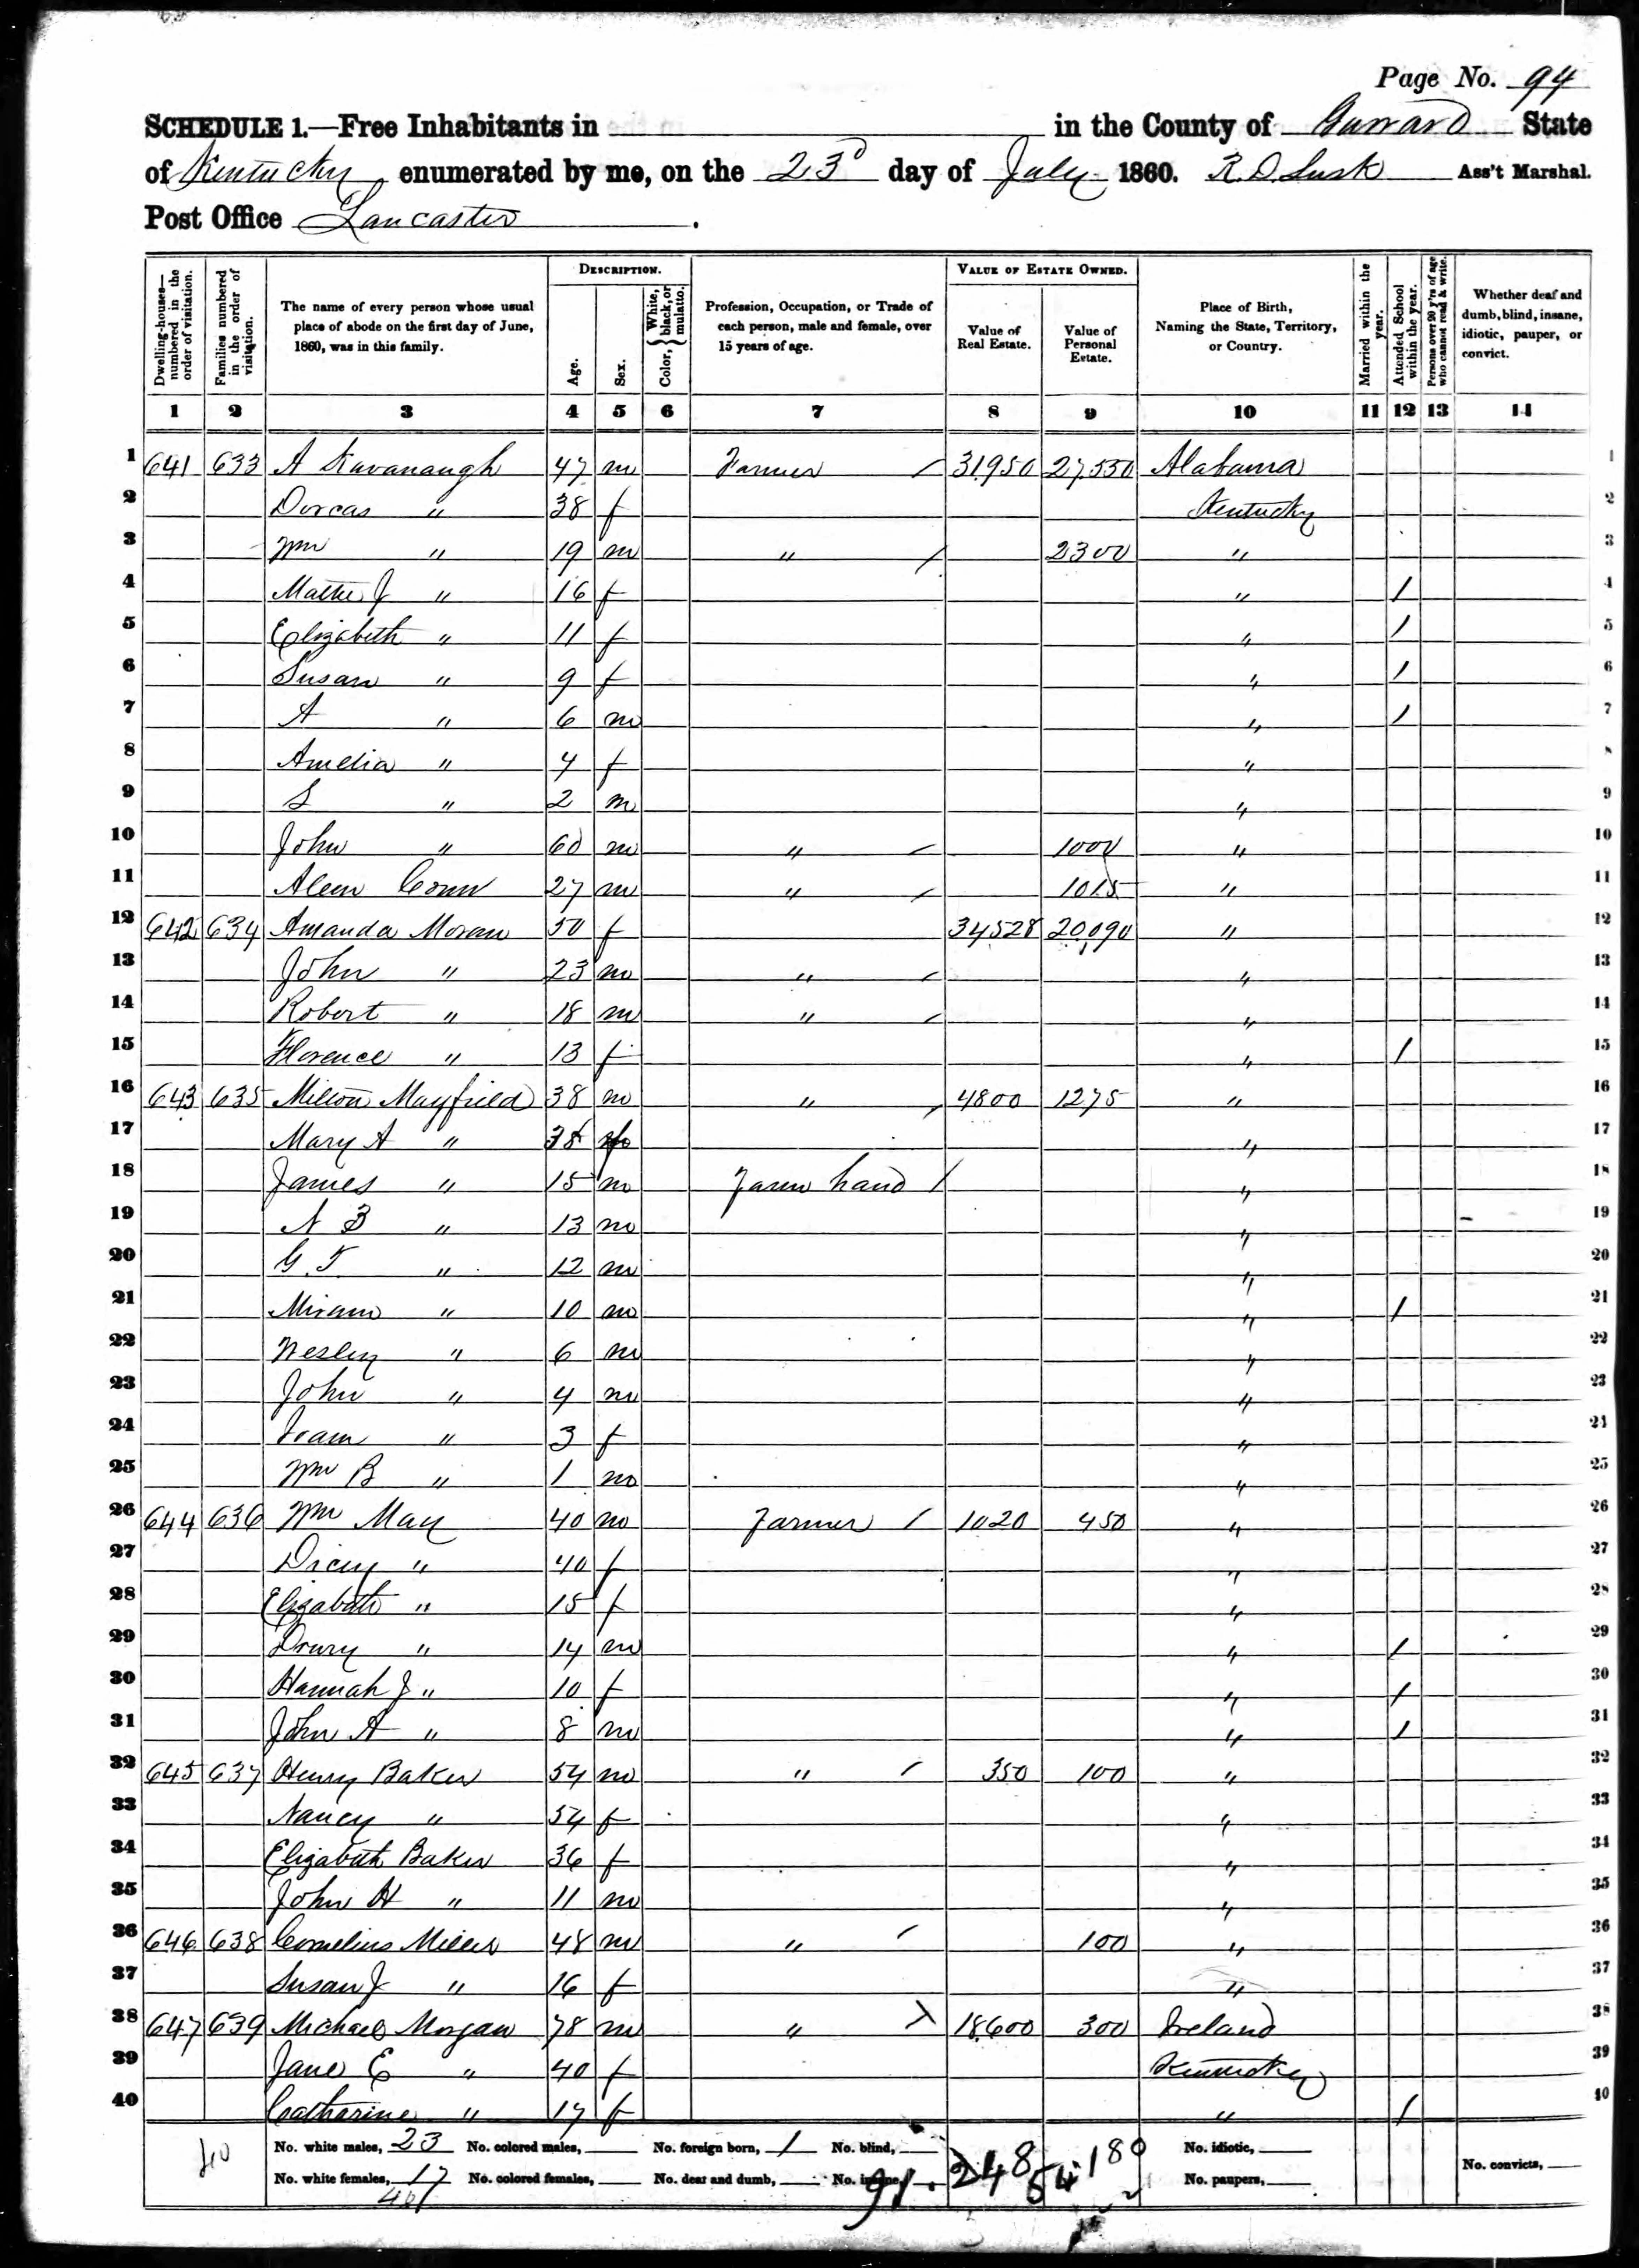 Page No. 94
SCHEDULE 1.—Free Inhabitants in in the County of Garrard State
of Kentucky enumerated by me, on the 23d day of July 1860. R. D. Lusk Ass't Marshal.
Post Office Lancaster.
Dwelling-houses—numbered in the order of visitation.
Families numbered in the order of visitation.
The name of every person whose usual place of abode on the first day of June, 1860, was in this family.
DESCRIPTION.
Age.
Sex.
Color, { White, black, or mulatto.
Profession, Occupation, or Trade of each person, male and female, over 15 years of age.
VALUE OF ESTATE OWNED.
Value of Real Estate.
Value of Personal Estate.
Place of Birth, Naming the State, Territory, or Country.
Married within the year.
Attended School within the year.
Persons over 20 y'rs of age who cannot read & write.
Whether deaf and dumb, blind, insane, idiotic, pauper, or convict.
1 2 3 4 5 6 7 8 9 10 11 12 13 14
1 641 633 A Kavanaugh 47 m Farmer / 31950 27,550 Alabama 1
2 Dorcas " 38 f Kentucky 2
3 Wm " 19 m " / 2300 " 3
4 Mattie J " 16 f " / 4
5 Elizabeth " 11 f " / 5
6 Susan " 9 f " / 6
7 A " 6 m " / 7
8 Amelia " 4 f " 8
9 S " 2 m " 9
10 John " 60 m " / 1000 " 10
11 Conn 27 m " / 1015 " 11
12 642 634 Amanda Moran 50 f 34528 20,090 " 12
13 John " 23 m " / " 13
14 Robert " 18 m " / " 14
15 Florence " 13 f " / 15
16 643 635 Milton Mayfield 38 m " / 4800 1275 " 16
17 Mary A " 38 f " 17
18 James " 15 m Farm hand / " 18
19 A B " 13 m " 19
20 G. T " 12 m " 20
21 " 10 m " / 21
22 Wesley " 6 m " 22
23 John " 4 m " 23
24 " 3 f " 24
25 Wm B " 1 m " 25
26 644 636 Wm May 40 m Farmer / 1020 450 " 26
27 Dicey " 40 f " 27
28 Elizabeth " 15 f " 28
29 Drury " 14 m " / 29
30 Hannah J " 10 f " / 30
31 John A " 8 m " / 31
32 645 637 Henry Baker 54 m " / 350 100 " 32
33 Nancy " 54 f " 33
34 Elizabeth Baker 36 f " 34
35 John H " 11 m " 35
36 646 638 Cornelius Miller 48 m " / 100 " 36
37 Susan J " 16 f " 37
38 647 639 Michael Morgan 78 m " 18,600 300 Ireland 38
39 Jane E " 40 f Kentucky 39
40 Catharine " 17 f " / 40
40 No. white males, 23 No. colored males, No. foreign born, 1 No. blind, No. idiotic,
No. white females, 17 No. colored females, No. deaf and dumb, No. insane, No. paupers, No. convicts,
40 91.248 54.180